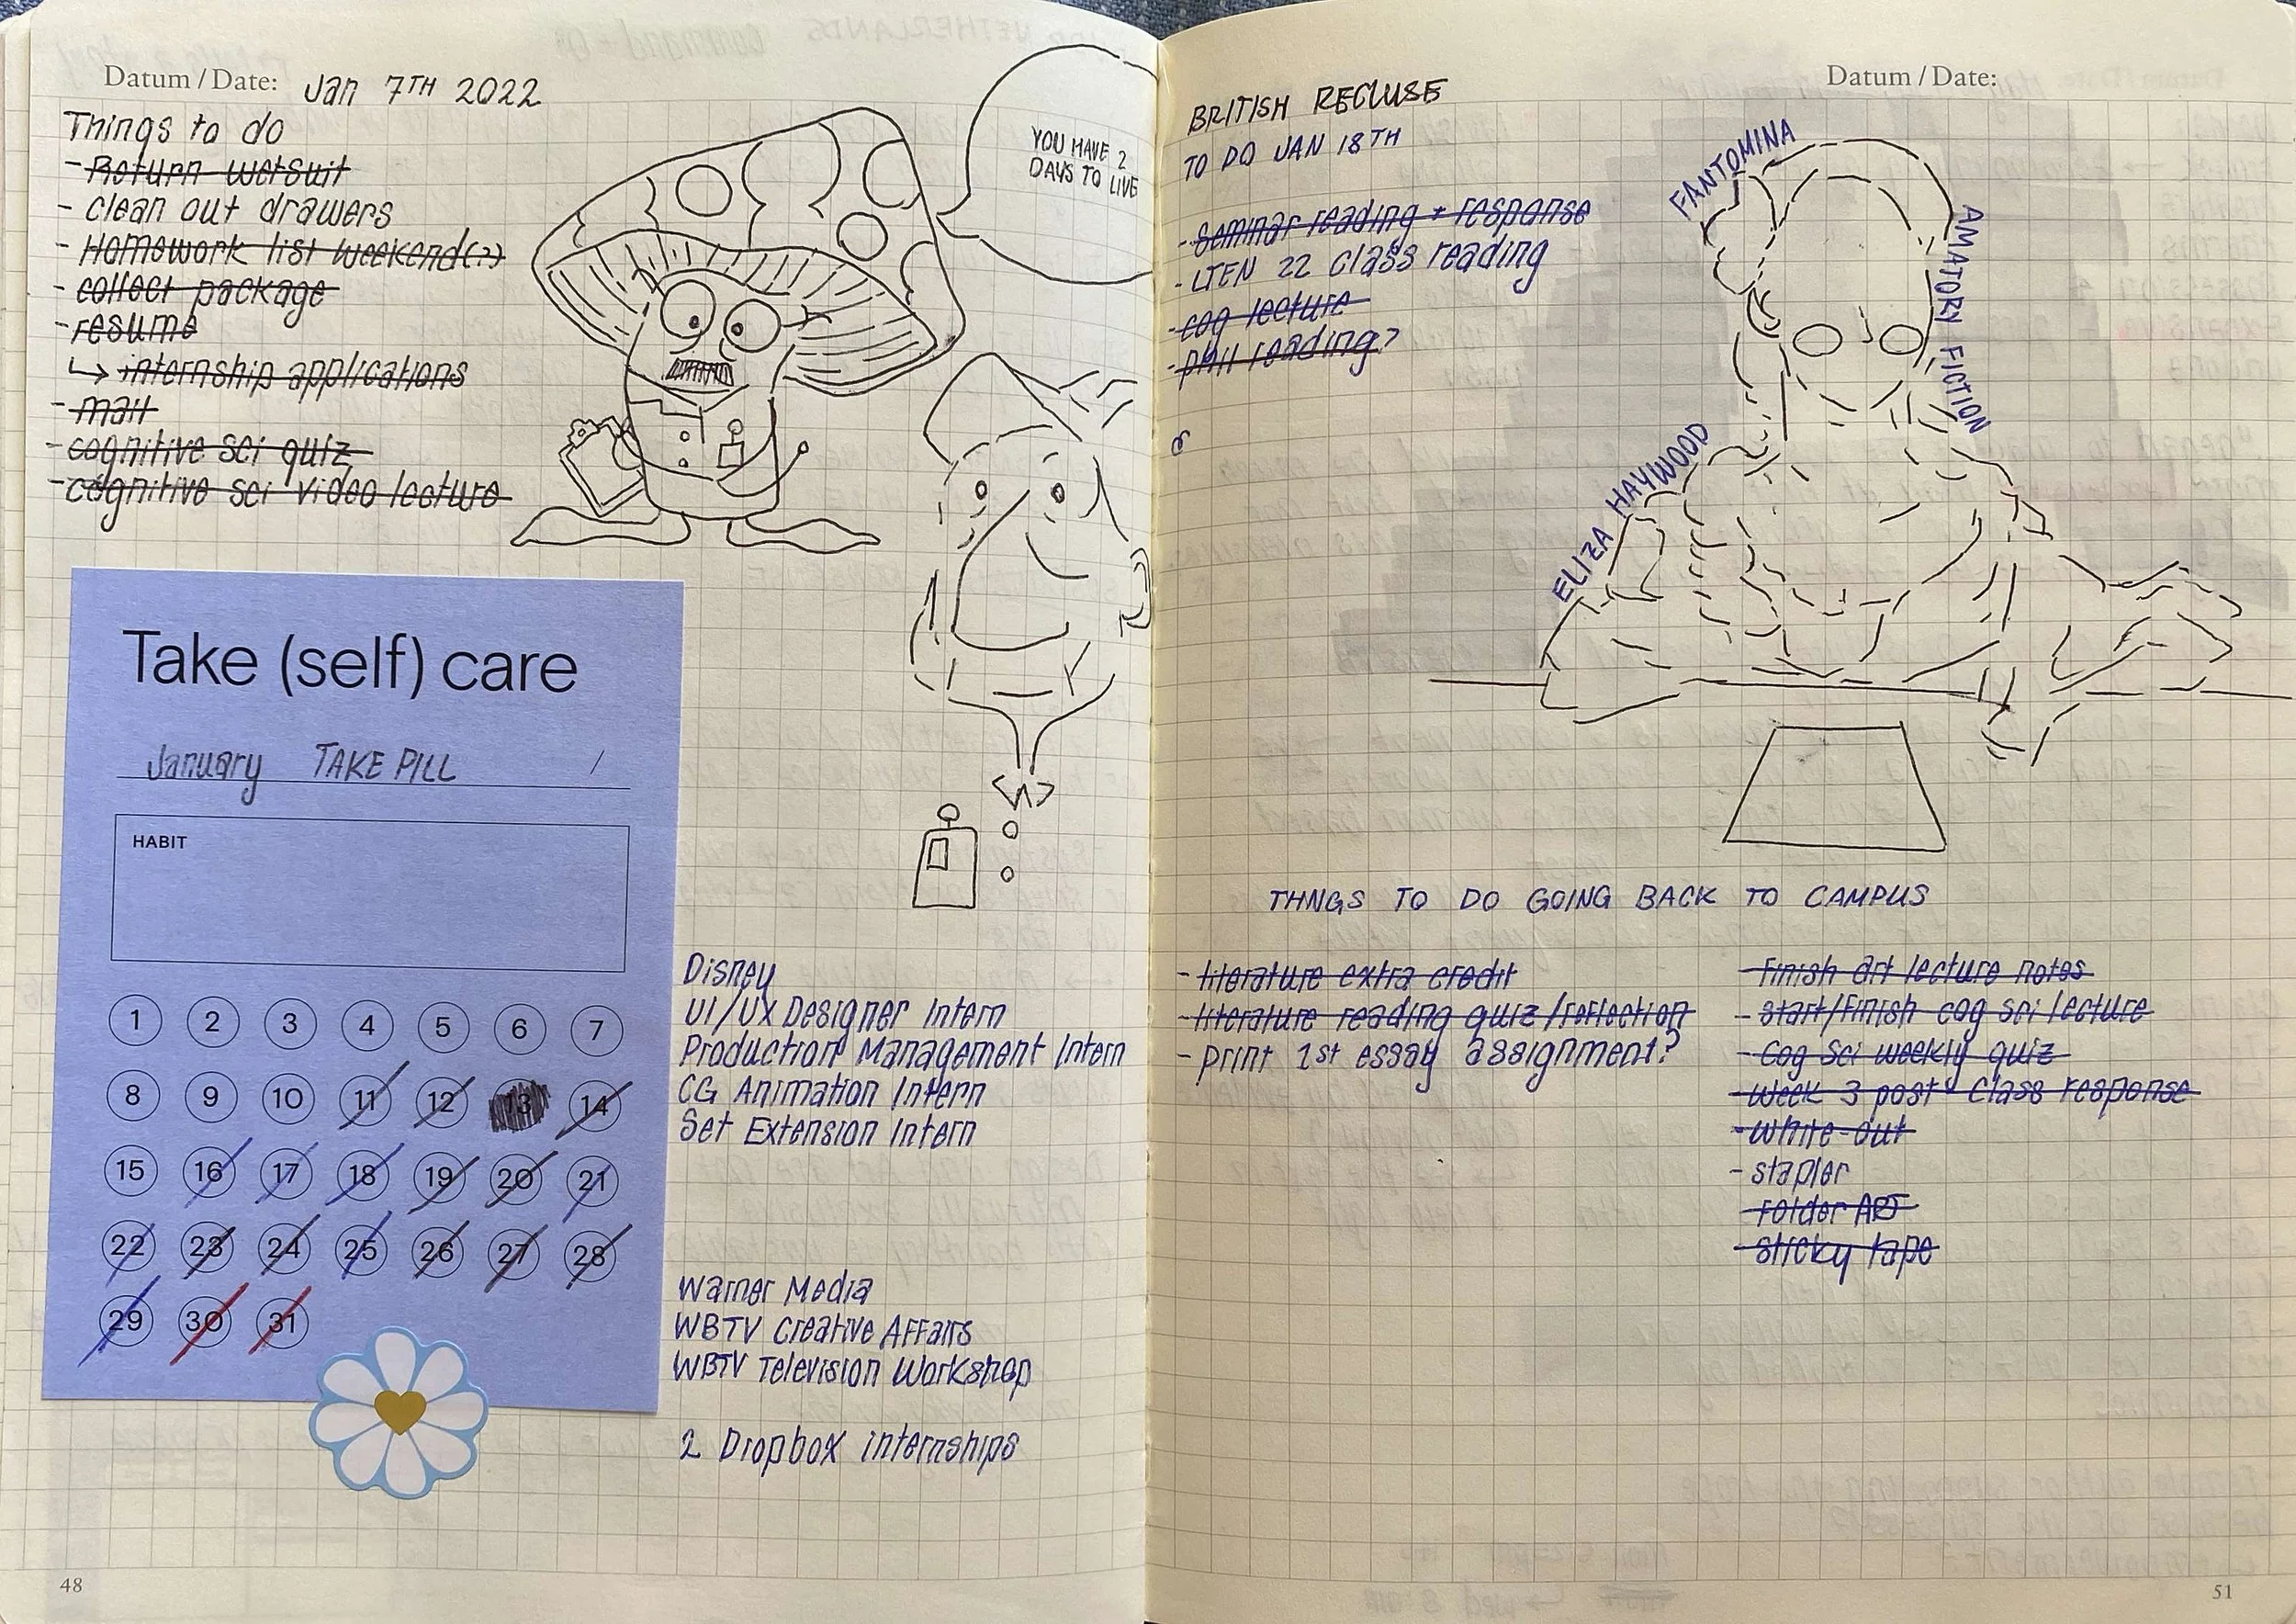 Datum / Date: Jan 7TH 2022
Things to do
- Return wetsuit
- clean out drawers
- Homework list weekend(?)
- collect package
- resume
↳ internship applications
- mail
- cognitive sci quiz
- cognitive sci video lecture
YOU HAVE 2
DAYS TO LIVE
Take (self) care
January TAKE PILL /
HABIT
1 2 3 4 5 6 7
8 9 10 11 12 13 14
15 16 17 18 19 20 21
22 23 24 25 26 27 28
29 30 31
Disney
UI/UX Designer Intern
Production Management Intern
CG Animation Intern
Set Extension Intern
Warner Media
WBTV Creative Affairs
WBTV Television Workshop
2 Dropbox internships
48
Datum / Date:
BRITISH RECLUSE
TO DO JAN 18TH
- Seminar reading + response
- LTEN 22 class reading
- cog lecture
- phil reading?
FANTOMINA
AMATORY FICTION
ELIZA HAYWOOD
THNGS TO DO GOING BACK TO CAMPUS
- literature extra credit
- literature reading quiz/reflection
- print 1st essay assignment?
- Finish art lecture notes
- start/Finish cog sci lecture
- Cog Sci weekly quiz
- Week 3 post Class response
- white-out
- stapler
- Folder ART
- sticky tape
51